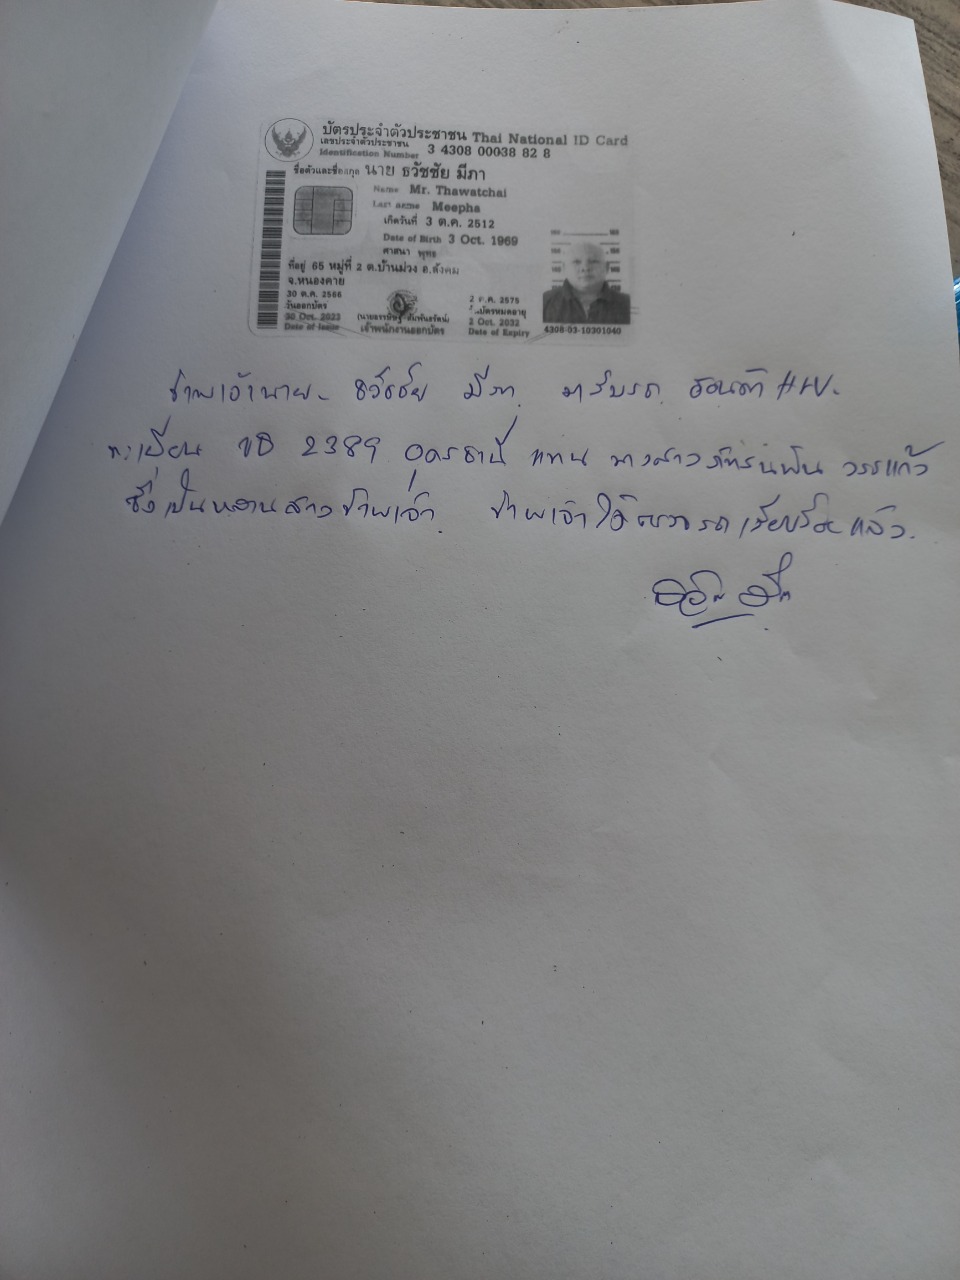 บัตรประจำตัวประชาชน Thai National ID Card
เลขประจำตัวประชาชน
Identification Number 3 4308 00038 82 8
ชื่อตัวและชื่อสกุล นาย ธวัชชัย มีภา
Name Mr. Thawatchai
Last name Meepha
เกิดวันที่ 3 ต.ค. 2512
Date of Birth 3 Oct. 1969
ศาสนา พุทธ
ที่อยู่ 65 หมู่ที่ 2 ต.บ้านม่วง อ.สังคม
จ.หนองคาย
30 ต.ค. 2566
วันออกบัตร
30 Oct. 2023
Date of Issue
เจ้าพนักงานออกบัตร
2 ต.ค. 2575
วันบัตรหมดอายุ
2 Oct. 2032
Date of Expiry
4308-03-10301040
ข้าพเจ้านาย ธวัชชัย มีภา มารับรถ ฮอนด้า
ทะเบียน 2389 อุดรธานี แทน นางสาว วรรแก้ว
ซึ่งเป็นหลานสาวข้าพเจ้า ข้าพเจ้าได้ตรวจรถเรียบร้อยแล้ว.